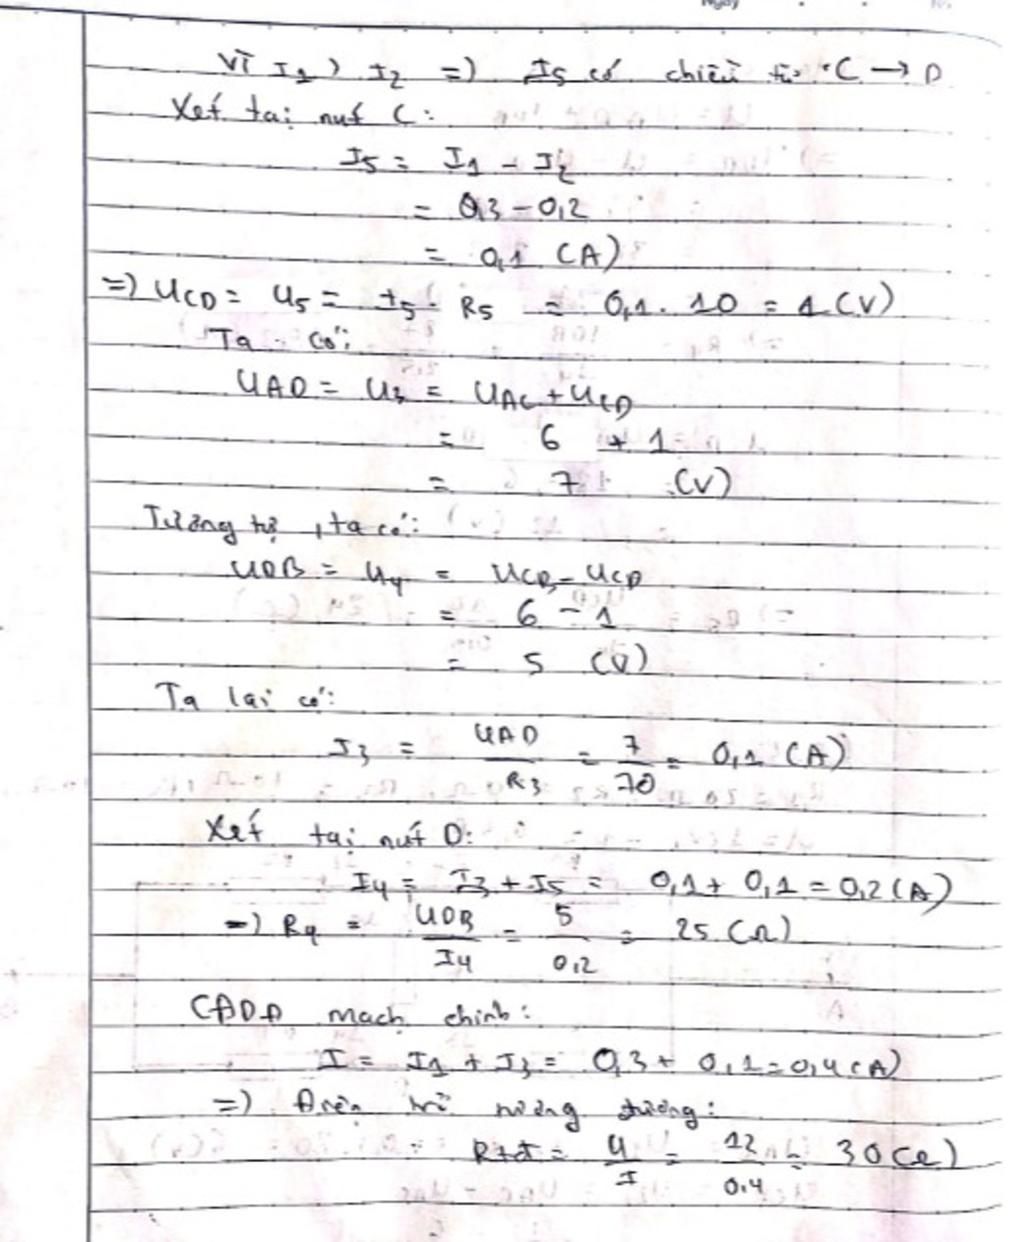 Vì I1 > I2 => I5 có chiều từ C → D
Xét tại nút C:
I5 = I1 - I2
= 0,3 - 0,2
= 0,1 (A)
=> UCD = U5 = I5 . R5 = 0,1 . 10 = 1 (V)
Ta có:
UAD = U3 = UAC + UCD
= 6 + 1
= 7 (V)
Tương tự, ta có:
UDB = U4 = UCB - UCD
= 6 - 1
= 5 (V)
Ta lại có:
I3 = UAD / R3 = 7 / 70 = 0,1 (A)
Xét tại nút D:
I4 = I3 + I5 = 0,1 + 0,1 = 0,2 (A)
=> R4 = UDB / I4 = 5 / 0,2 = 25 (Ω)
CĐDĐ mạch chính:
I = I1 + I3 = 0,3 + 0,1 = 0,4 (A)
=> Điện trở tương đương:
Rtđ = U / I = 12 / 0.4 = 30 (Ω)